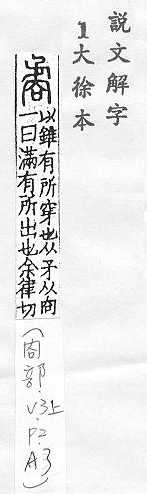 說文解字
1大徐本
矞
以錐有所穿也从矛从㕯
一曰滿有所出也余律切
(㕯部.V3上.P2.A3)